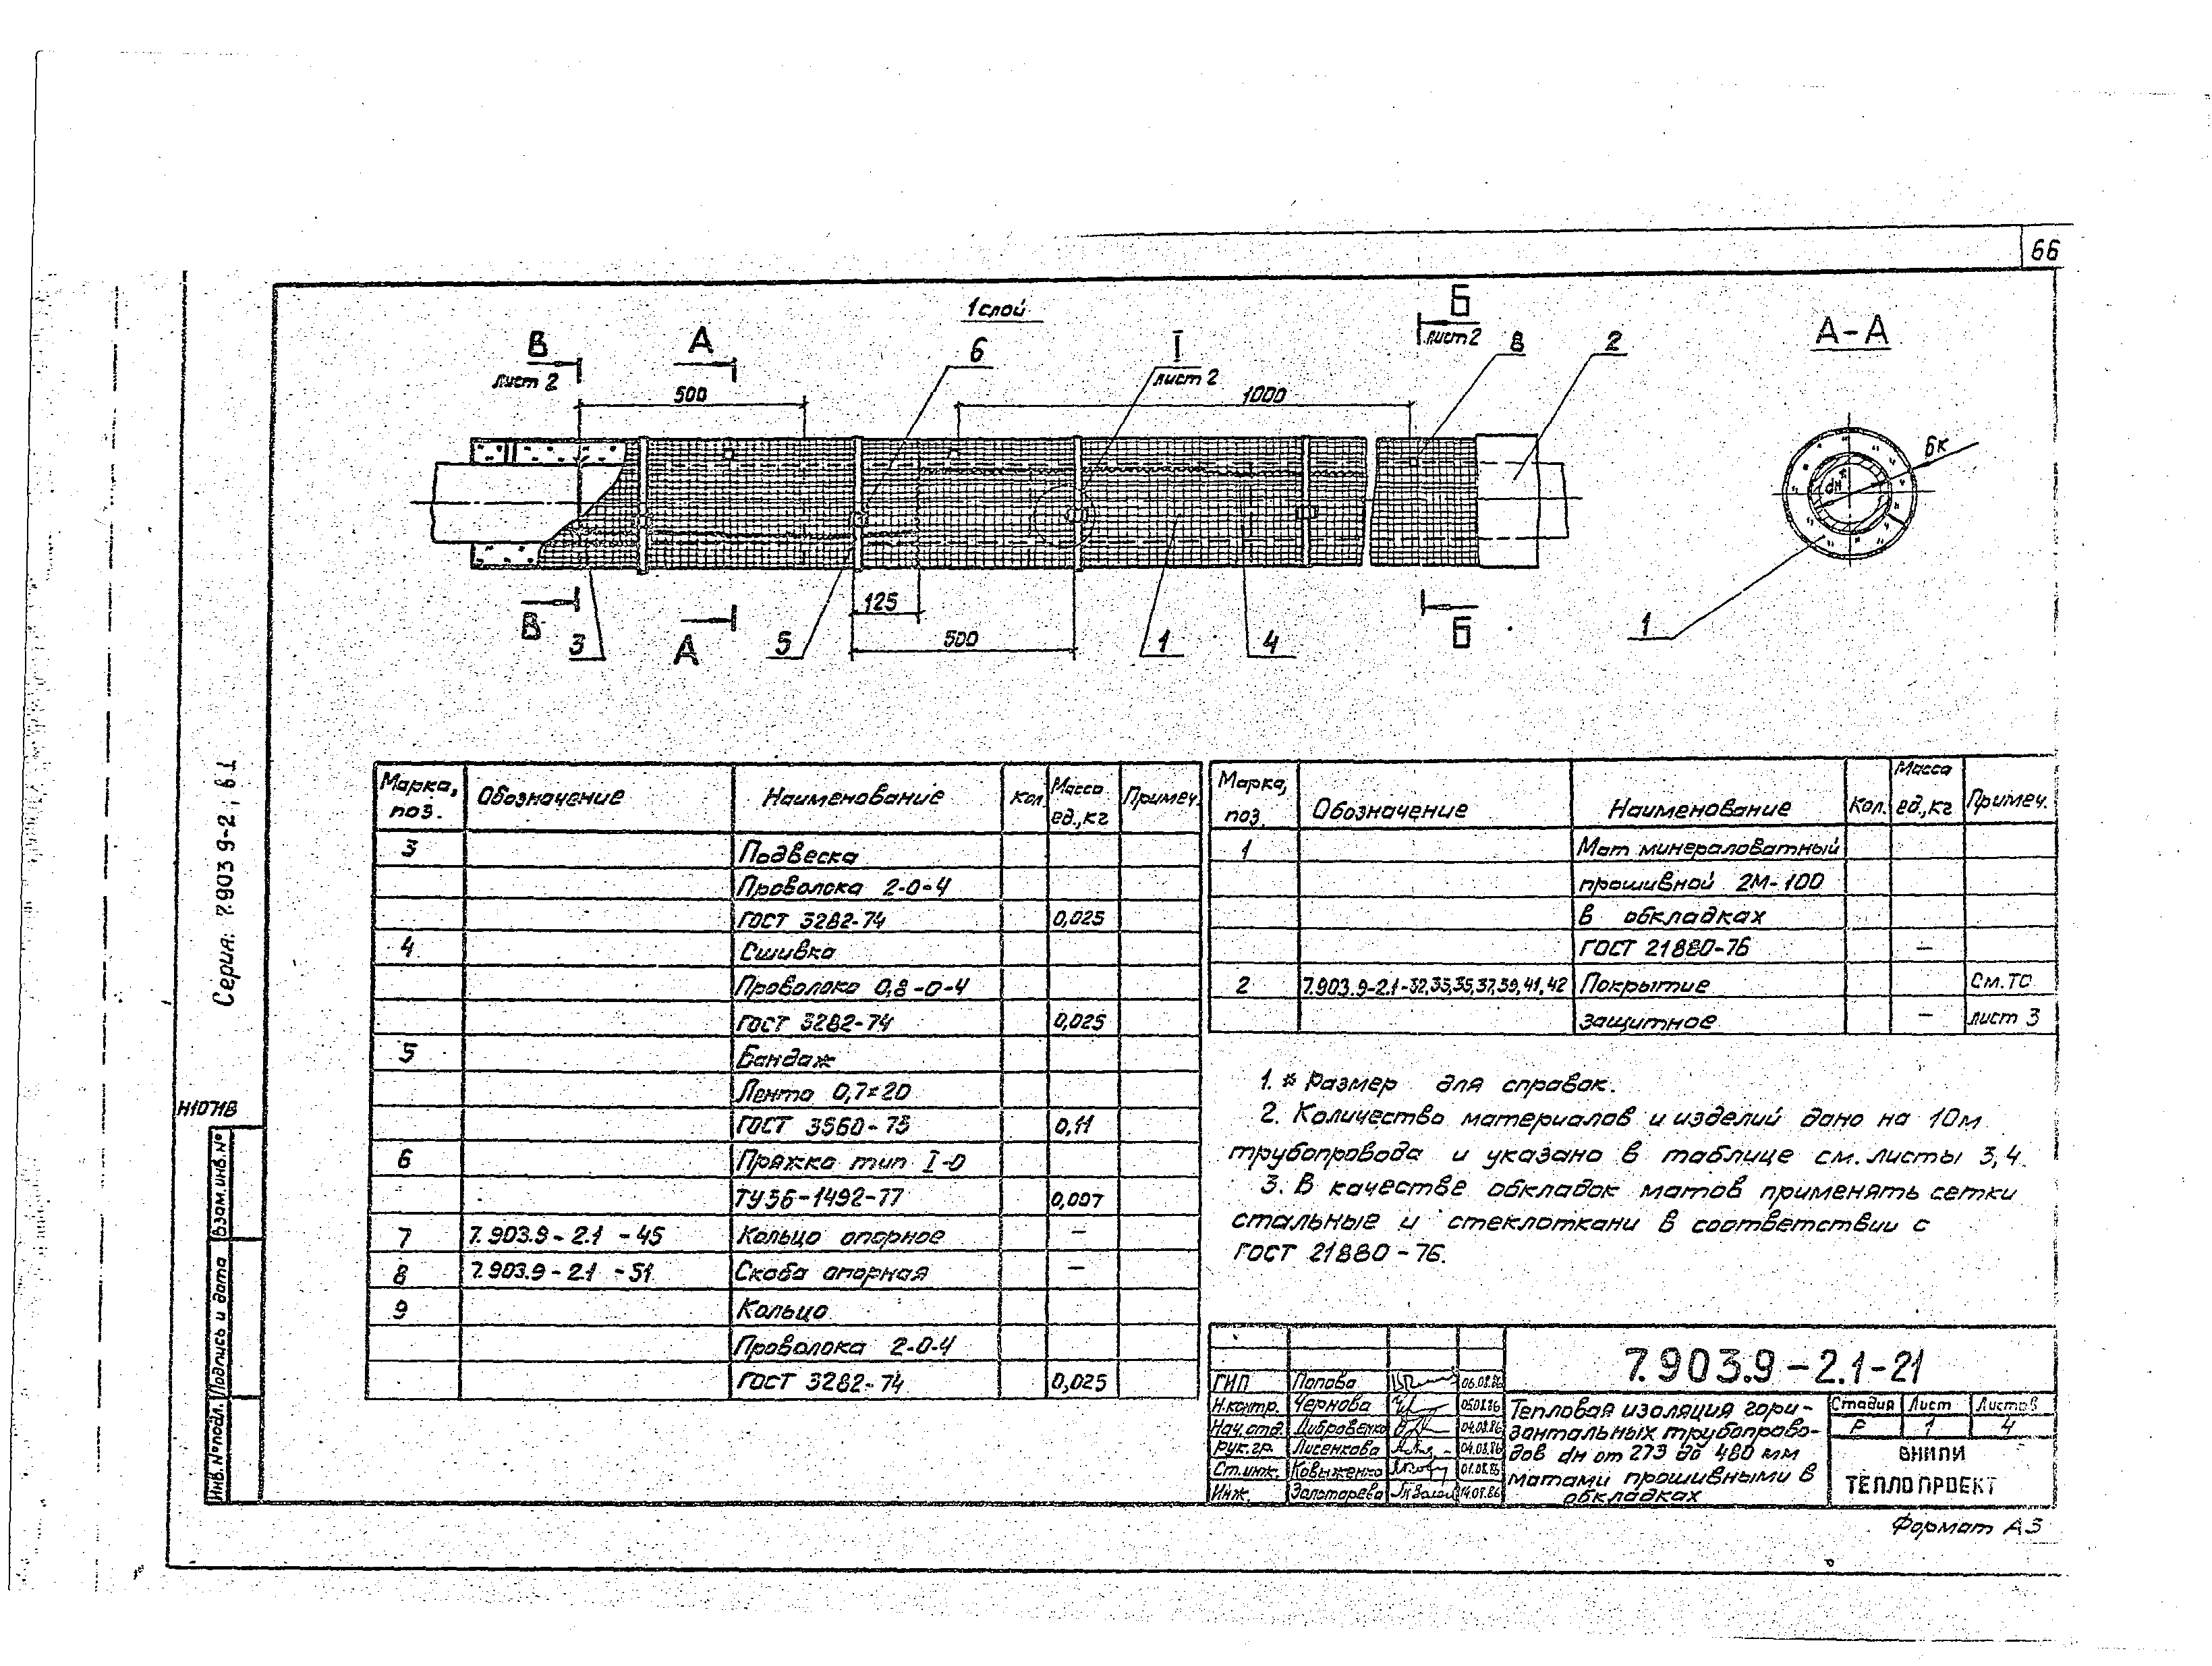 66
1 слой
В
лист 2
А
6
I
лист 2
Б
лист 2
8
2
А-А
500
1000
бк
dн*
В
3
А
5
125
500
1
4
Б
1
Марка, поз. Обозначение Наименование Кол. Масса ед.,кг Примеч.
3 Подвеска
Проволока 2-0-4
ГОСТ 3282-74 0,025
4 Сшивка
Проволока 0,8-0-4
ГОСТ 3282-74 0,025
5 Бандаж
Лента 0,7×20
ГОСТ 3560-73 0,11
6 Пряжка тип I-0
ТУ36-1492-77 0,007
7 7.903.9-2.1 -45 Кольцо опорное —
8 7.903.9-2.1 -51 Скоба опорная —
9 Кольцо
Проволока 2-0-4
ГОСТ 3282-74 0,025
Марка, поз. Обозначение Наименование Кол. Масса ед.,кг Примеч.
1 Мат минераловатный
прошивной 2М-100
в обкладках
ГОСТ 21880-76 —
2 7.903.9-2.1-32,33,35,37,39,41,42 Покрытие См.ТО
защитное — лист 3
1. * Размер для справок.
2. Количество материалов и изделий дано на 10м
трубопровода и указано в таблице см. листы 3,4.
3. В качестве обкладок матов применять сетки
стальные и стеклоткани в соответствии с
ГОСТ 21880-76.
7.903.9-2.1-21
ГИП Попова 06.08.86
Н.контр. Чернова 05.08.86
Нач.отд. Дибровенко 04.08.86
Рук.гр. Лисенкова 04.08.86
Ст.инж. Ковыженко 01.08.86
Инж. Золотарева 14.07.86
Тепловая изоляция гори-
зонтальных трубопрово-
дов dн от 273 до 480 мм
матами прошивными в
обкладках
Стадия Лист Листов
Р 1 4
ВНИПИ
ТЕПЛОПРОЕКТ
Формат А3
Серия: 7.903 9-2; в.1
Н1071В
Взам.инв.№
Подпись и дата
Инв.№подл.